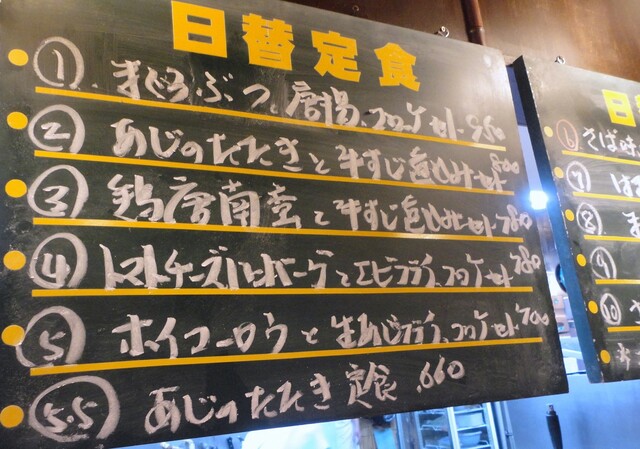 日替定食
① まぐろぶつ、唐揚、コロッケセット 950
② あじのたたきと牛すじ煮込みセット 800
③ 鶏唐南蛮と牛すじ煮込みセット 780
④ トマトチーズハンバーグとエビフライ、コロッケセット 780
⑤ ホイコーロウと生あじフライ、コロッケセット 700
5.5 あじのたたき定食 660
日
⑥ さば味
⑦ は
⑧
⑨
⑩